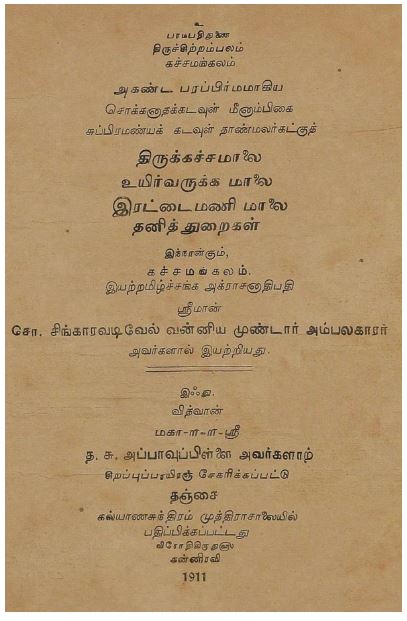 உ
பாடபதிகணை
திருச்சிற்றம்பலம்
கச்சமங்கலம்
அகண்ட பரப்பிர்மமாகிய
சொக்கனாதக்கடவுள் மீனாம்பிகை
சுப்பிரமண்யக் கடவுள் தாண்மலர்கட்குத்
திருக்கச்சமாலை
உயிர்வருக்க மாலை
இரட்டைமணி மாலை
தனித்துறைகள்
இந்நான்கும்,
கச்சமங்கலம்.
இயற்றமிழ்ச்சங்க அக்ராசனாதிபதி
ஸ்ரீமான்
சொ. சிங்காரவடிவேல் வன்னிய முண்டார் அம்பலகாரர்
அவர்களால் இயற்றியது.
இஃது.
வித்வான்
மகா-ள-ள-ஸ்ரீ
த. சு. அப்பாவுப்பிள்ளை அவர்களாற்
சிறப்புப்பாயிரஞ் சேகரிக்கப்பட்டு
தஞ்சை
கல்யாணசுந்திரம் முத்திராசாலையில்
பதிப்பிக்கப்பட்டது
விரோதிகிருதுளு
கன்னிரவி
1911